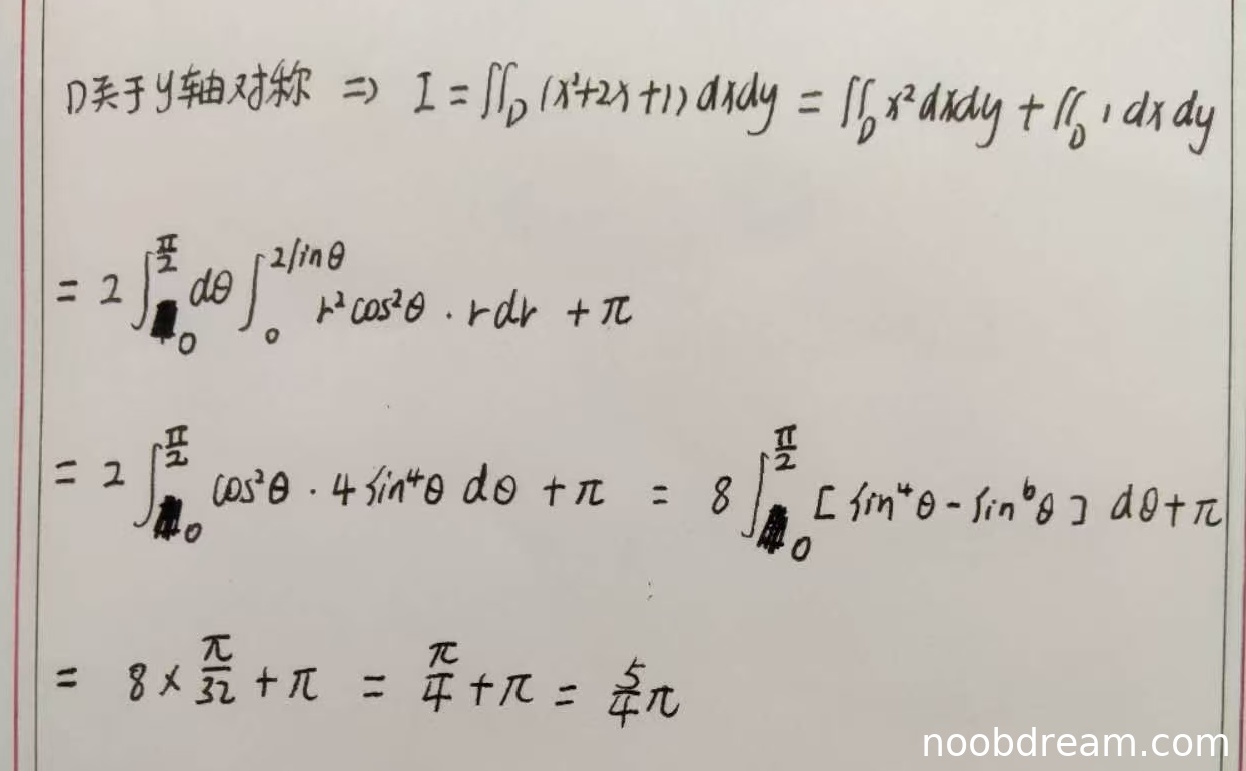 D关于y轴对称 ⇒ I = ∬_D (x²+2x+1) dxdy = ∬_D x² dxdy + ∬_D 1 dx dy
= 2 ∫_0^{π/2} dθ ∫_0^{2sinθ} r² cos²θ · r dr + π
= 2 ∫_0^{π/2} cos²θ · 4 sin⁴θ dθ + π = 8 ∫_0^{π/2} [sin⁴θ - sin⁶θ] dθ + π
= 8 × π/32 + π = π/4 + π = 5/4 π
noobdream.com